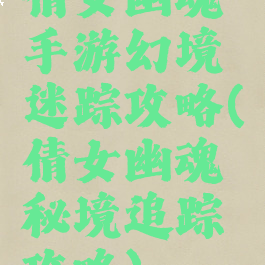 倩女幽魂
手游幻境
迷踪攻略(
倩女幽魂
秘境追踪
攻略)